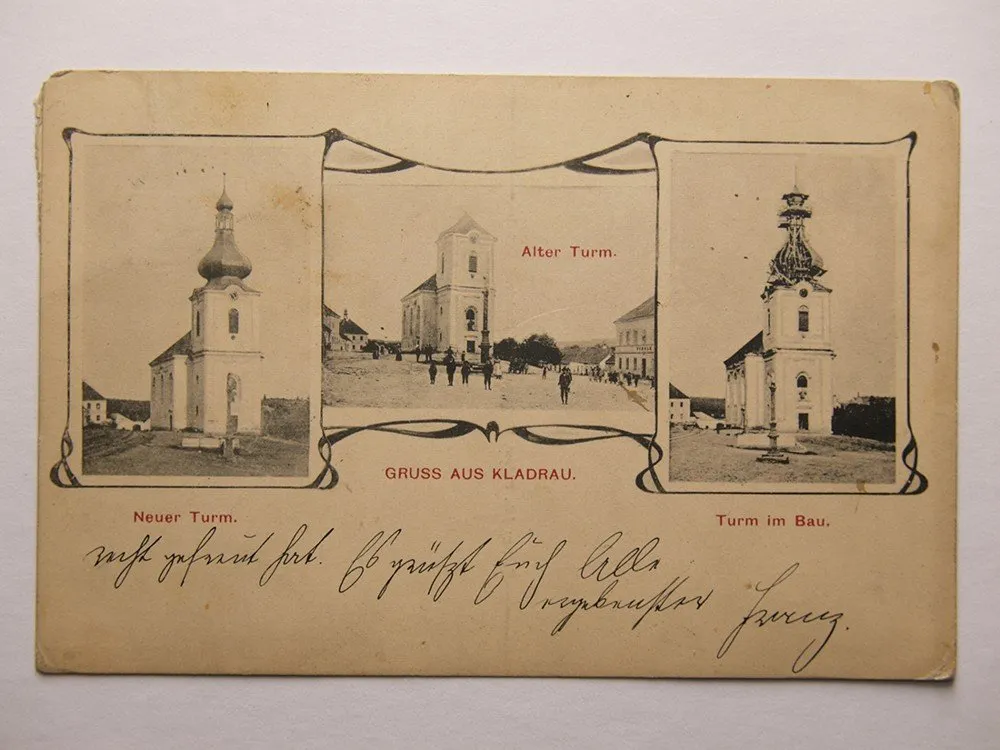 Alter Turm.
GRUSS AUS KLADRAU.
Neuer Turm.
Turm im Bau.
recht gefreut hat. Es grüßt Euch Alle
ergebenster Franz.